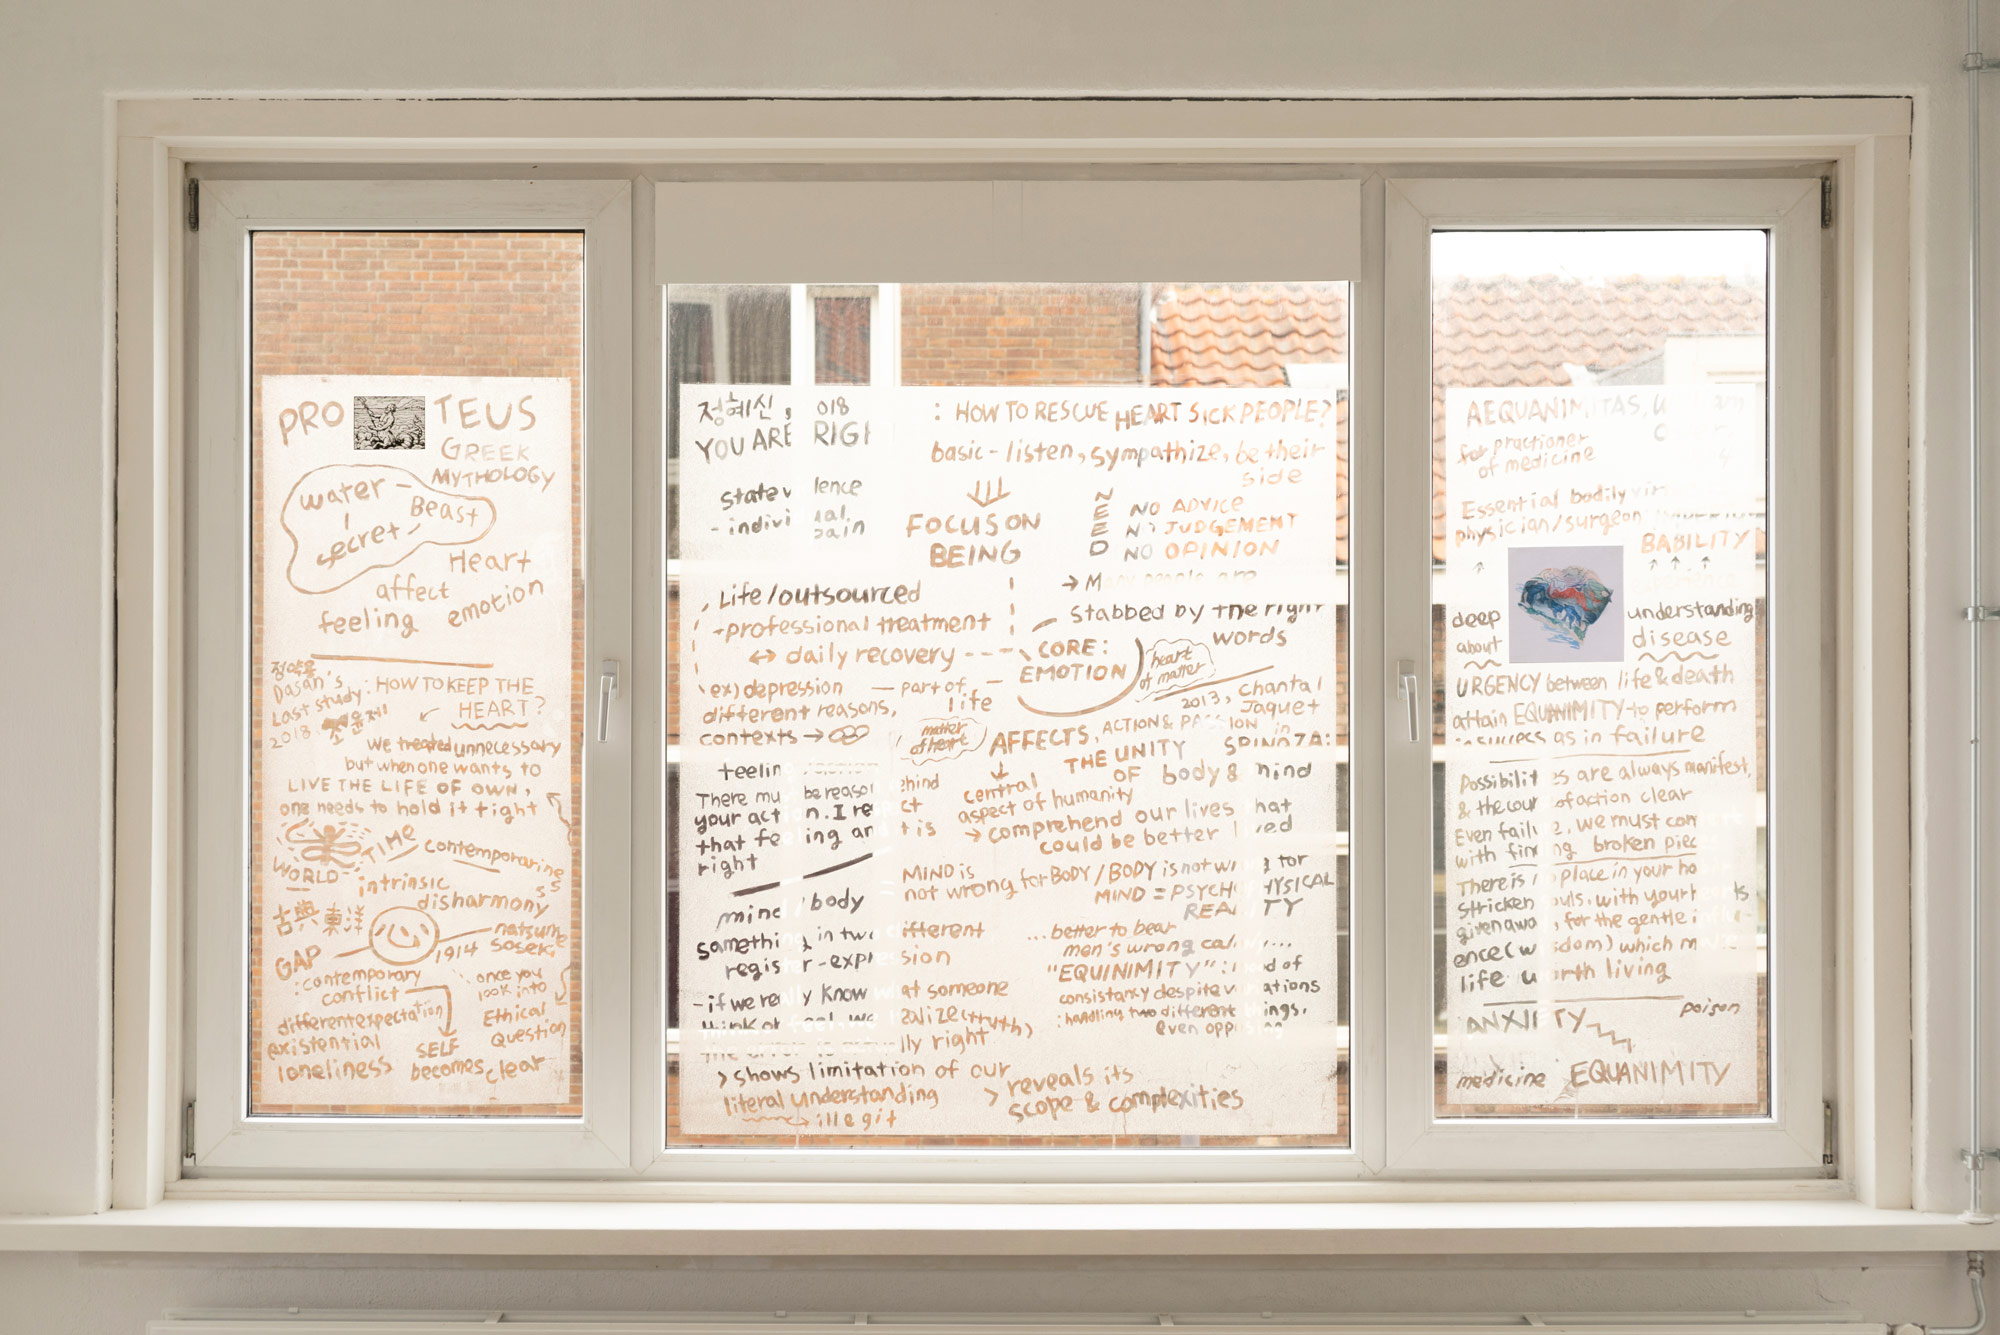 PRO TEUS
GREEK
MYTHOLOGY
water -
Beast
secret -
Heart
affect
emotion
feeling
정약용
Dasan's
Last study: HOW TO KEEP THE
HEART?
2018.
we treated unnecessary
but when one wants to
LIVE THE LIFE OF OWN,
one needs to hold it tight
TIME
WORLD
contemporarine
ss
intrinsic
disharmony
古典 東洋
natsume
soseki
1914
GAP
: contemporary
conflict
once you
look into
different expectation
Ethical
Question
existential
loneliness
SELF
becomes clear
정혜신, 018
YOU ARE RIGH
: HOW TO RESCUE HEART SICK PEOPLE?
basic - listen, sympathize, be their
side
state v lence
- indivi ual
pain
FOCUS ON
BEING
NEED
NO ADVICE
NO JUDGEMENT
NO OPINION
→ Many people are
stabbed by the right
words
Life/outsourced
professional treatment
↔ daily recovery
CORE:
EMOTION
heart
of matter
ex) depression
— part of
life
different reasons,
contexts →
2013, Chantal
Jaquet
matter
of heart
AFFECTS, ACTION & PASSION in
THE UNITY SPINOZA:
OF body & mind
central
aspect of humanity
→ comprehend our lives that
could be better lived
feelin
There mu be reaso ehind
your act n. I re ct
that fe ing an t is
right
MIND is
not wrong for BODY / BODY is not wrong for
MIND = PSYCHOPHYSICAL
REALITY
mind / body
something in two different
register - expression
... better to bear
men's wrong
"EQUINIMITY": of
consistancy despite variations
: handling two different things,
even opposing
- if we really know what someone
think or feel, we realize (truth)
lly right
> shows limitation of our
literal understanding
illegit
> reveals its
scope & complexities
AEQUANIMITAS,
for practioner
of medicine
Essential bodily
physician/surgeon
BABILITY
deep
understanding
about
disease
URGENCY between life & death
attain EQUANIMITY to perform
as in failure
Possibilities are always manifest,
& the cour of action clear
Even failu e, we must con
with fin ng broken piec
There is place in your ho
stricken ouls, with your
given awa , for the gentle
ence (wisdom) which make
life worth living
ANXIETY
poison
medicine
EQUANIMITY